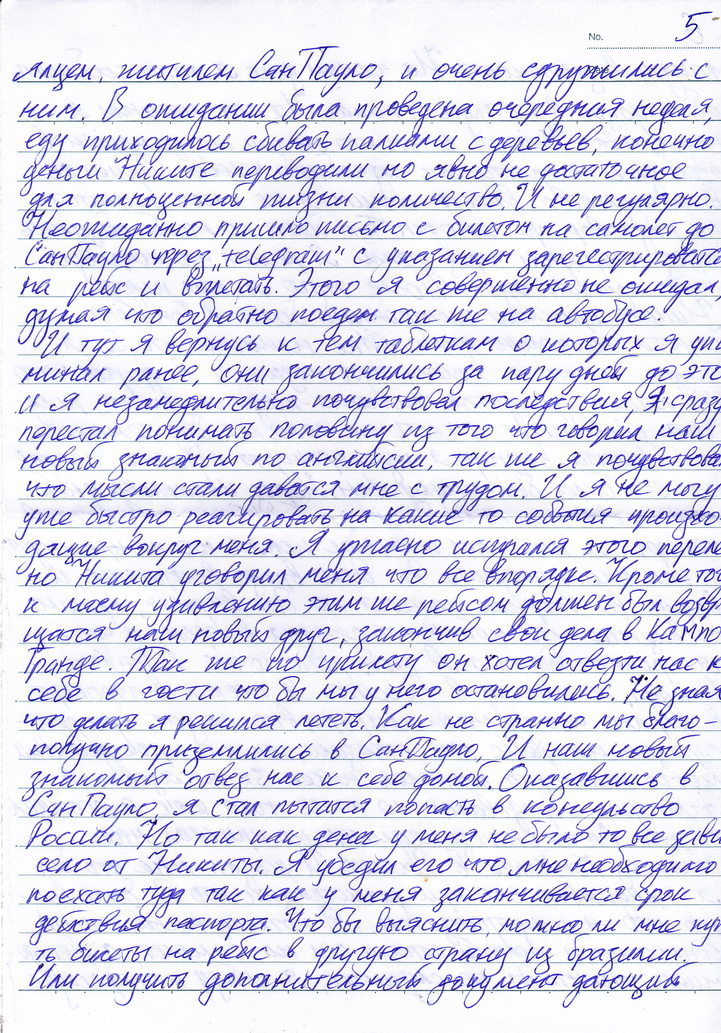 No. 5
ялцем, жителем СанПауло, и очень сдружились с
ним. В ожидании была проведена очередная неделя,
еду приходилось сбивать палками с деревьев, конечно
деньги Никите переводили но явно не достаточное
для полноценной жизни количество. И не регулярно.
Неожиданно пришло письмо с билетом на самолет до
СанПауло через „telegram" с указанием зарегестрироватся
на рейс и вылетать. Этого я совершенно не ожидал,
думая что обратно поедем так же на автобусе.
И тут я вернусь к тем таблеткам о которых я упо
минал ранее, они закончились за пару дней до это
и я незамедлительно почувствовал последствия, Я сразу
перестал понимать половину из того что говорил наш
новый знакомый по английски, так же я почувствова
что мысли стали даватся мне с трудом. И я не могу
уже быстро реагировать на какие то события происхо
дящие вокруг меня. Я ужасно испугался этого переле
но Никита уговорил меня что все впорядке. Кроме тог
к моему удивлению этим же рейсом должен был возвр
щатся наш новый друг, закончив свои дела в Кампо
Гранде. Так же по прилету он хотел отвезти нас к
себе в гости что бы мы у него остановились. Не зная
что делать я решился лететь. Как не странно мы благо-
получно приземлились в СанПауло, И наш новый
знакомый отвез нас к себе домой. Оказавшись в
СанПауло, я стал пытатся попасть в консульство
России. Но так как денег у меня не было то все зави
село от Никиты. Я убедил его что мне необходимо
поехать туда так как у меня заканчивается срок
действия паспорта. Что бы выяснить, можно ли мне куп
ть билеты на рейс в другую страну из бразилии.
Или получить дополнительный документ дающий